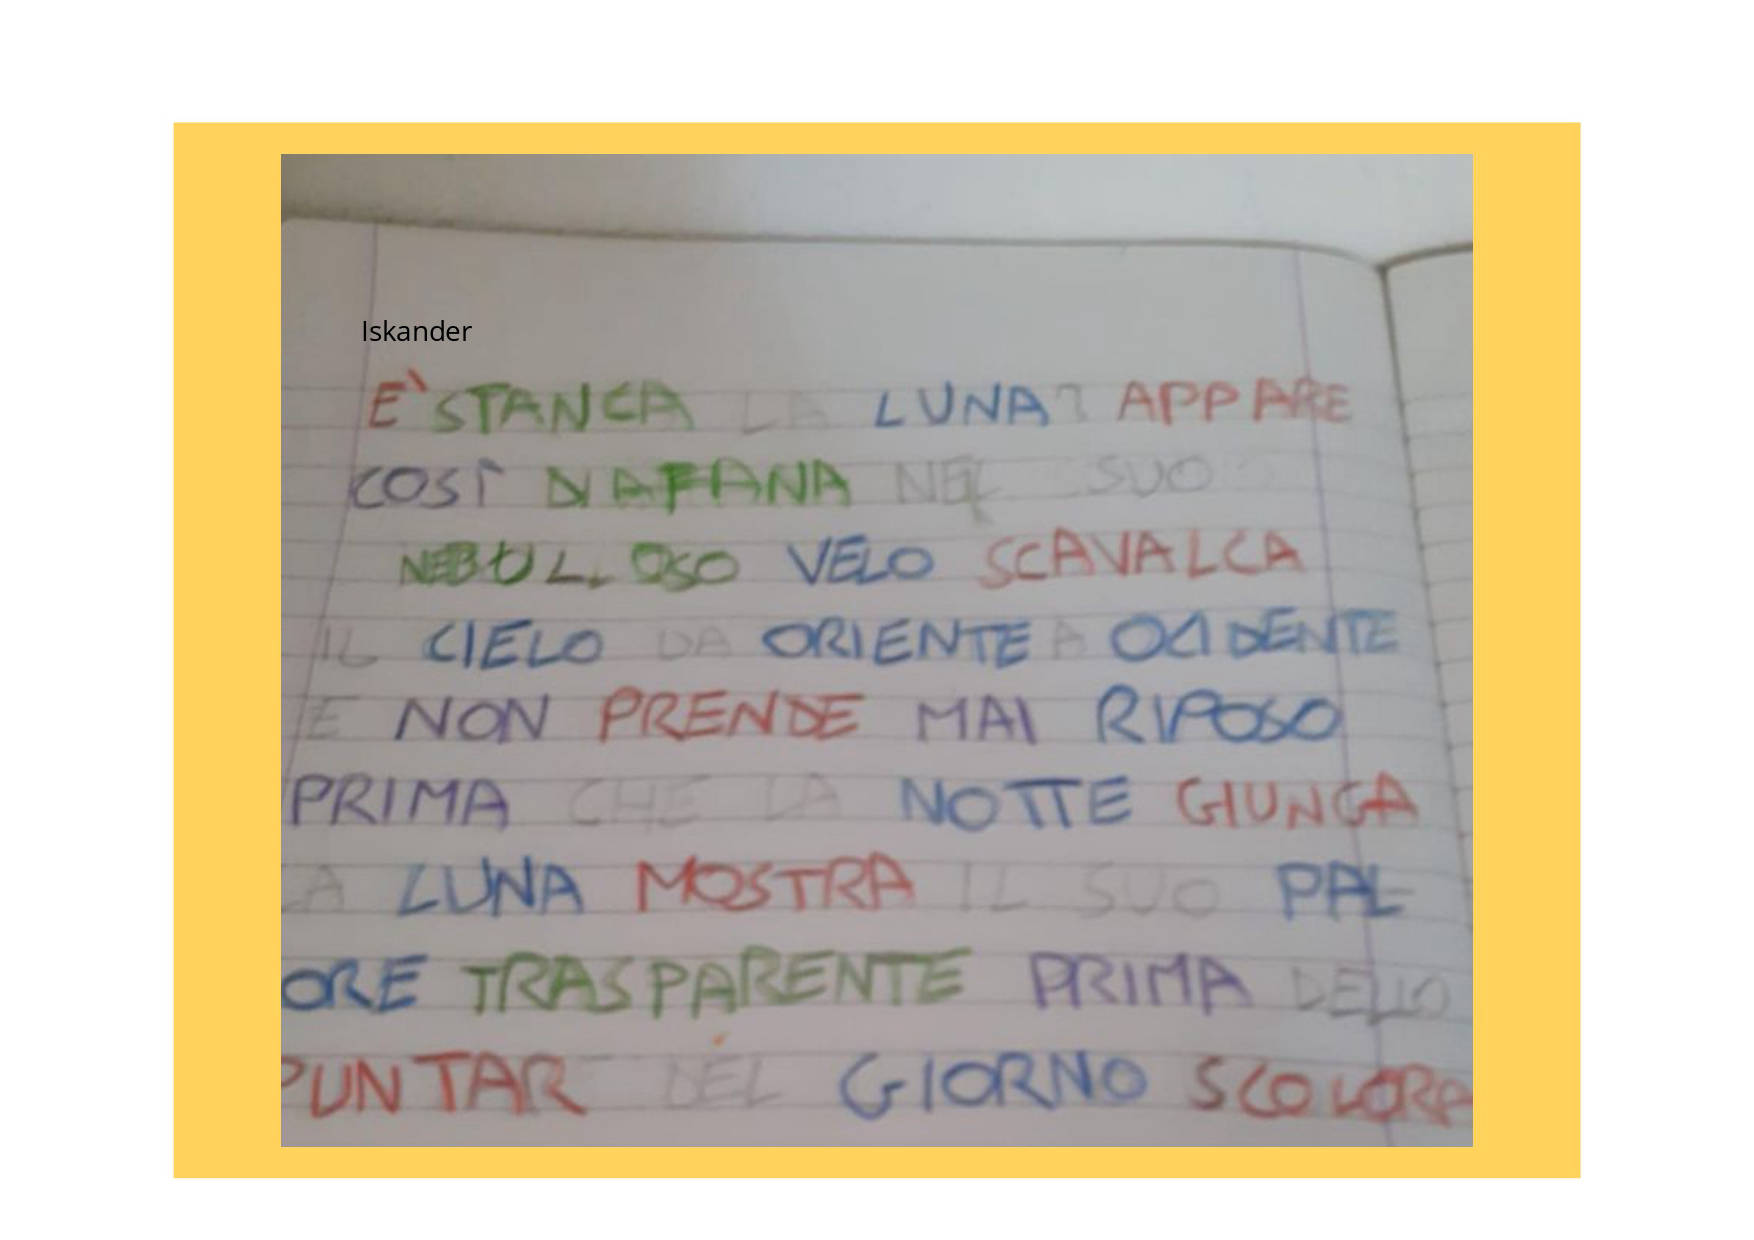 Iskander
E' STANCA LA LUNA APPARE
COSÌ DIAFANA NEL SUO
NEBULLOSO VELO SCAVALCA
IL CIELO DA ORIENTE A OCIDENTE
E NON PRENDE MAI RIPOSO
PRIMA CHE LA NOTTE GIUNGA
LA LUNA MOSTRA IL SUO PAL
ORE TRASPARENTE PRIMA DELLO
PUNTAR DEL GIORNO SCOLORA